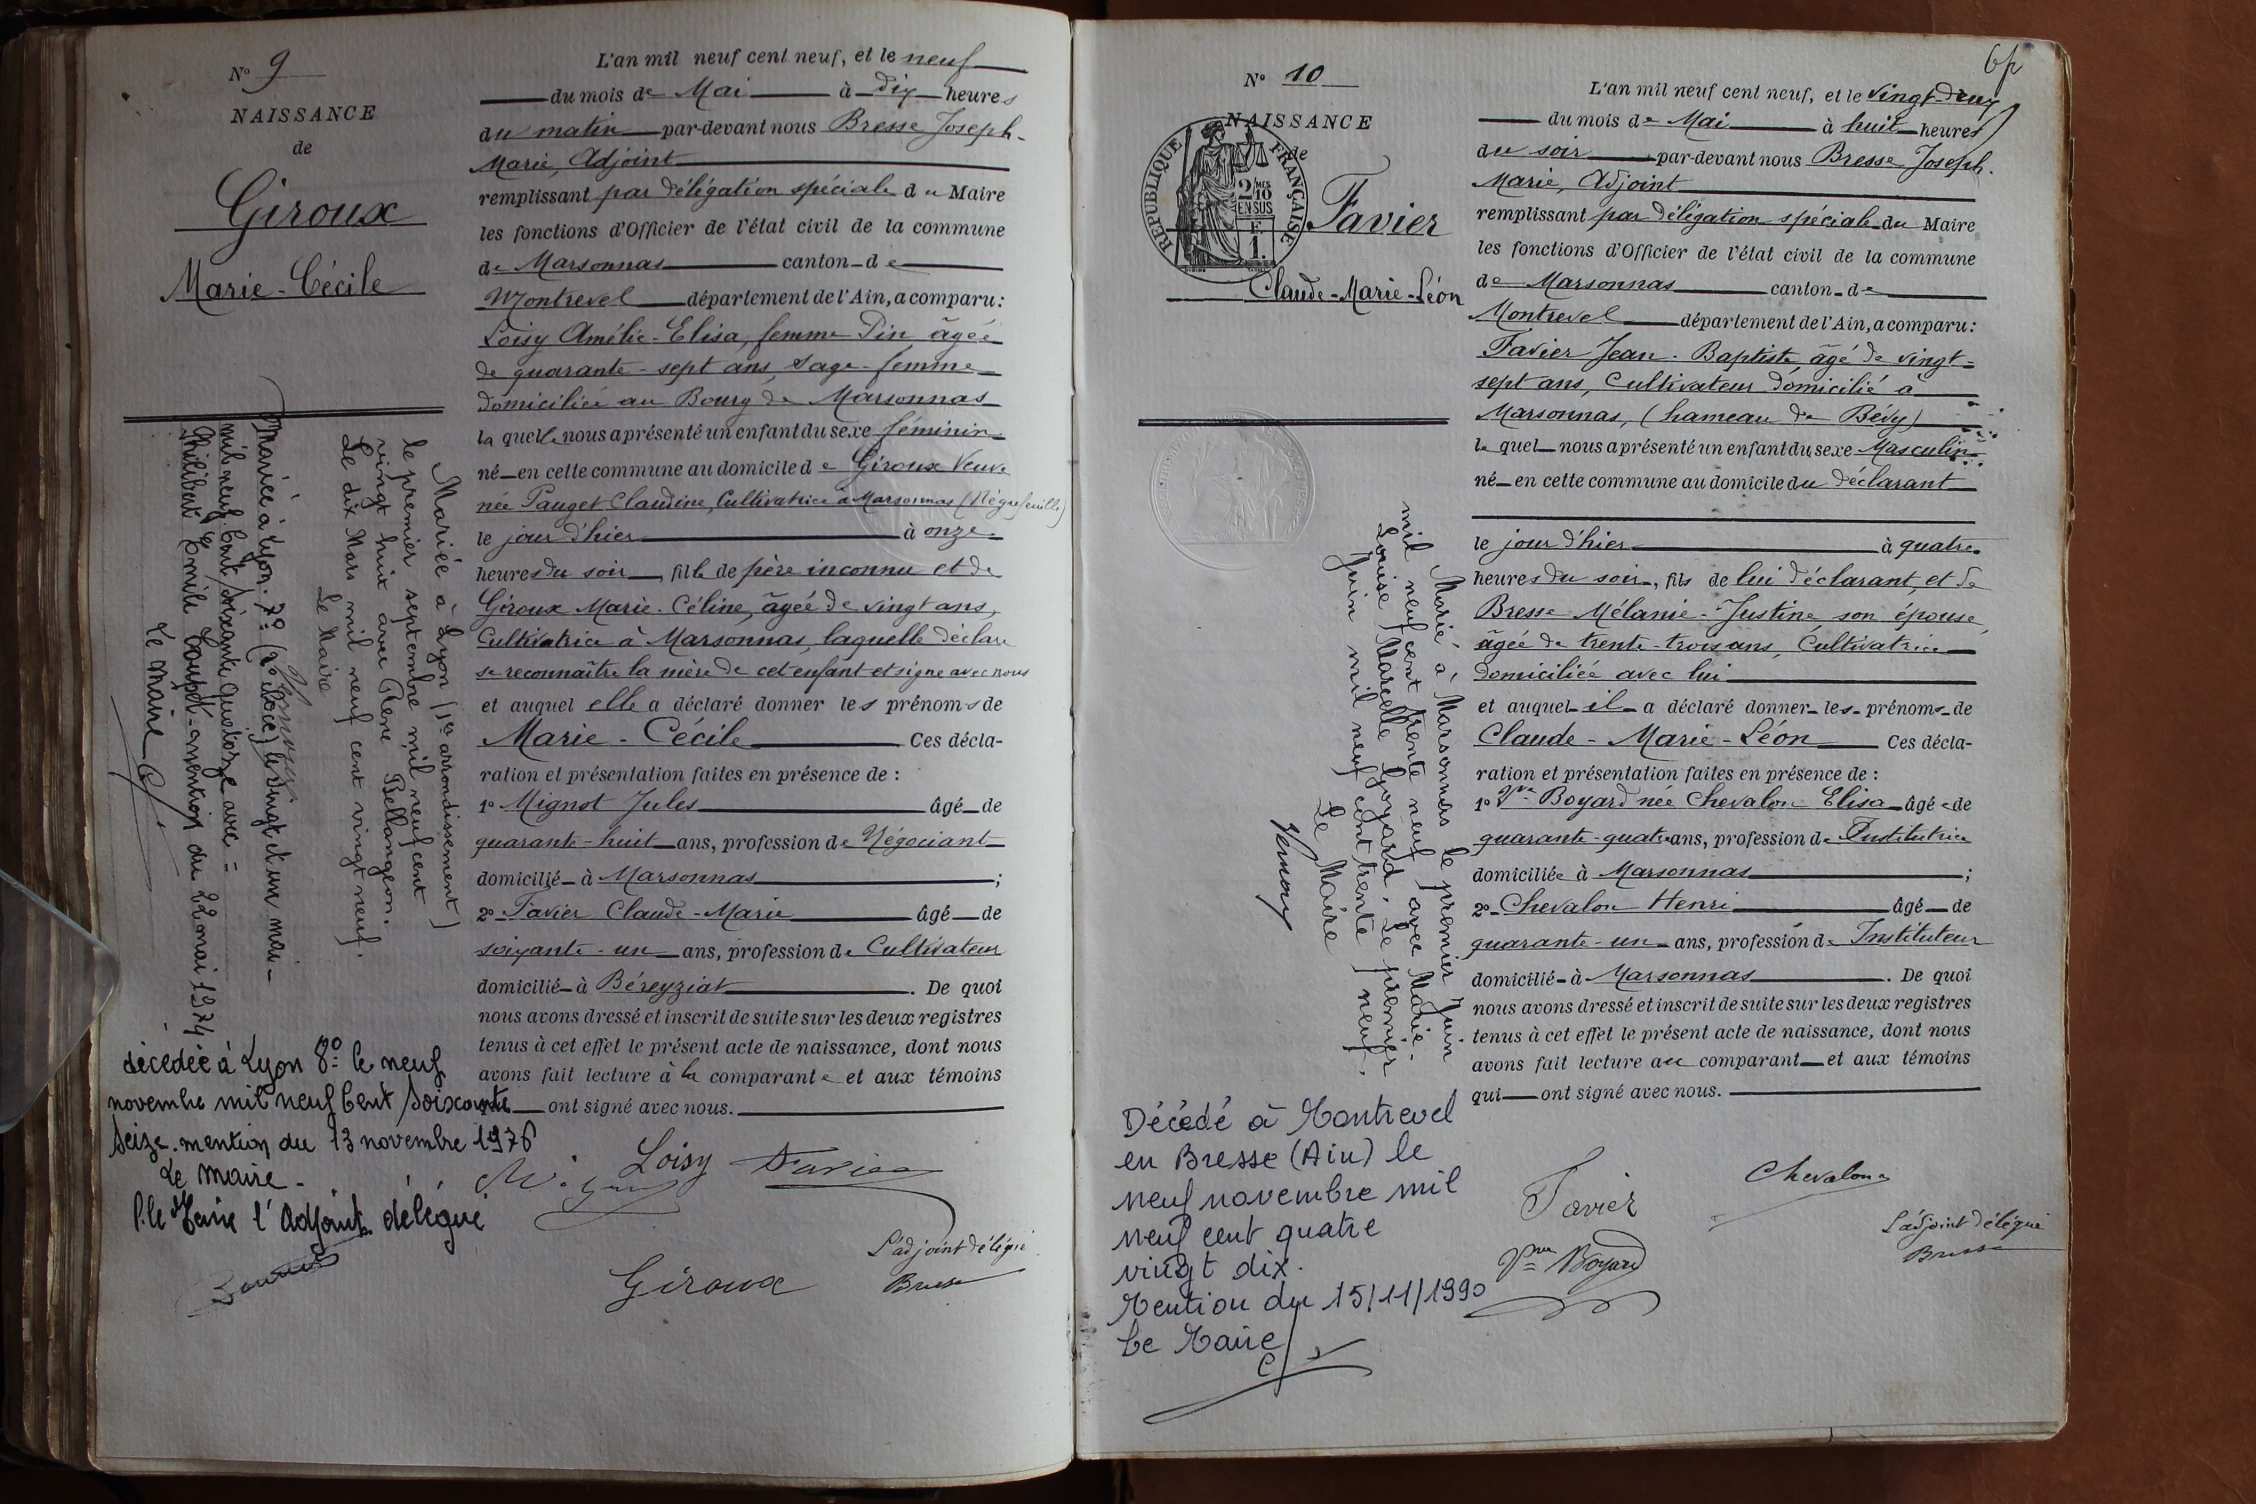 N° 9
NAISSANCE
de
Giroux
Marie-Cécile
L'an mil neuf cent neuf, et le neuf
du mois de Mai à dix heures
du matin par-devant nous Bresse Joseph-
Marie, Adjoint
remplissant par délégation spéciale du Maire
les fonctions d'Officier de l'état civil de la commune
de Marsonnas canton de
Montrevel département de l'Ain, a comparu :
Loisy Amélie-Elisa, femme Pin, âgée
de quarante-sept ans, sage-femme
domiciliée au Bourg de Marsonnas
laquelle nous a présenté un enfant du sexe féminin
né en cette commune au domicile de Giroux Veuve
née Pauget Claudine, Cultivatrice à Marsonnas
le jour d'hier à onze
heures du soir, fille de père inconnu et de
Giroux Marie-Céline, âgée de vingt ans,
Cultivatrice à Marsonnas, laquelle déclare
se reconnaître la mère de cet enfant et signe avec nous
et auquel elle a déclaré donner les prénoms de
Marie-Cécile Ces décla-
ration et présentation faites en présence de :
1° Mignot Jules âgé de
quarante-huit ans, profession de Négociant
domicilié à Marsonnas ;
2° Favier Claude-Marie âgé de
soixante-un ans, profession de Cultivateur
domicilié à Béreyziat. De quoi
nous avons dressé et inscrit de suite sur les deux registres
tenus à cet effet le présent acte de naissance, dont nous
avons fait lecture à la comparante et aux témoins
ont signé avec nous.
Loisy Favier
Giroux
L'adjoint délégué
Bresse
Mariée à Lyon (1er arrondissement)
le premier septembre mil neuf cent
vingt huit avec René Bellangeon.
Le dix Mars mil neuf cent vingt neuf.
Le Maire
Mariée à Lyon 7e (le vingt et un mai
mil neuf Cent Soixante Quatorze avec =
Philibert Emile mention du 22 mai 1974
Le Maire
décédée à Lyon 8e le neuf
novembre mil neuf Cent Soixante
Seize. mention du 13 novembre 1976
Le Maire -
P. le Maire l'Adjoint délégué
6
N° 10
NAISSANCE
de
REPUBLIQUE FRANÇAISE
2/10 MES
EN SUS
F.
1.
Favier
Claude-Marie-Léon
L'an mil neuf cent neuf, et le vingt-deux
du mois de Mai à huit heures
du soir par-devant nous Bresse Joseph-
Marie, Adjoint
remplissant par délégation spéciale du Maire
les fonctions d'Officier de l'état civil de la commune
de Marsonnas canton de
Montrevel département de l'Ain, a comparu :
Favier Jean-Baptiste âgé de vingt-
sept ans, Cultivateur domicilié à
Marsonnas, (hameau de Bévy)
lequel nous a présenté un enfant du sexe Masculin
né en cette commune au domicile du déclarant
le jour d'hier à quatre
heures du soir, fils de lui déclarant, et de
Bresse Mélanie-Justine, son épouse,
âgée de trente-trois ans, Cultivatrice
domiciliée avec lui
et auquel il a déclaré donner les prénoms de
Claude-Marie-Léon Ces décla-
ration et présentation faites en présence de :
1° Vve Boyard née Chevalon Elisa âgée de
quarante-quatre ans, profession d'Institutrice
domiciliée à Marsonnas ;
2° Chevalon Henri âgé de
quarante-un ans, profession d'Instituteur
domicilié à Marsonnas. De quoi
nous avons dressé et inscrit de suite sur les deux registres
tenus à cet effet le présent acte de naissance, dont nous
avons fait lecture au comparant et aux témoins
qui ont signé avec nous.
Favier
Chevalon
Vve Boyard
L'adjoint délégué
Bresse
Marié à Marsonnas le premier Juin
mil neuf cent trente neuf avec Marie-
Louise Marcelle Goyard. Le premier
Juin mil neuf cent trente neuf.
Le Maire
Décédé à Montrevel
en Bresse (Ain) le
neuf novembre mil
neuf cent quatre
vingt dix.
Mention du 15/11/1990
Le Maire